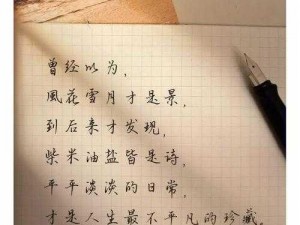 曾经以为，
風花雪月才是景，
到后来才发现，
柴米油盐皆是诗，
平平淡淡的日常，
才是人生最不平凡的珍藏。